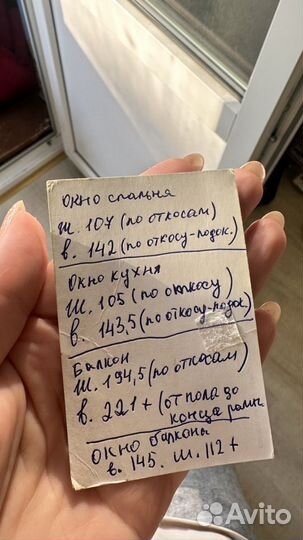 Окно спальня
ш. 107 (по откосам)
в. 142 (по откосу-подок.)
Окно кухня
Ш. 105 (по откосу)
в. 143,5 (по откосу-подок.)
Балкон
Ш. 194,5 (по откосам)
в. 221 + (от пола до
конца рамы
Окно балконы
в. 145. ш. 112 +
Avito